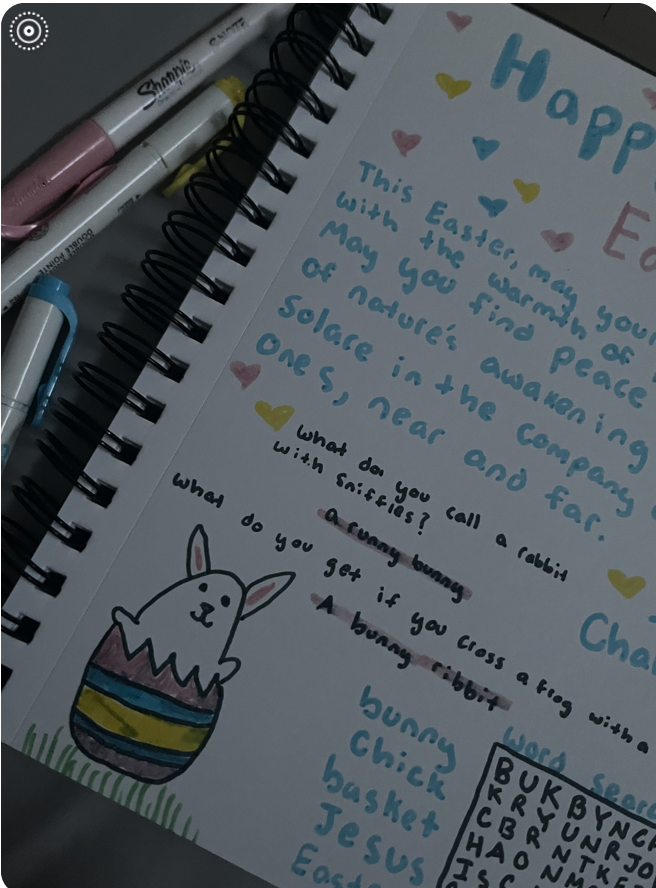 Sharpie
S-NOTE
DOUBLE POINTE
Happ
Ea
This Easter, may your
with the warmth of
May you find peace
of nature's awakening
solace in the company
ones, near and far.
What do you call a rabbit
with sniffles?
a runny bunny
What do you get if you cross a frog with a
A bunny ribbit
Cha
bunny
Chick
basket
Jesus
Easte
Word Searc
BUKBYNG
KRYUNRJO
CBRNTKE
HAO